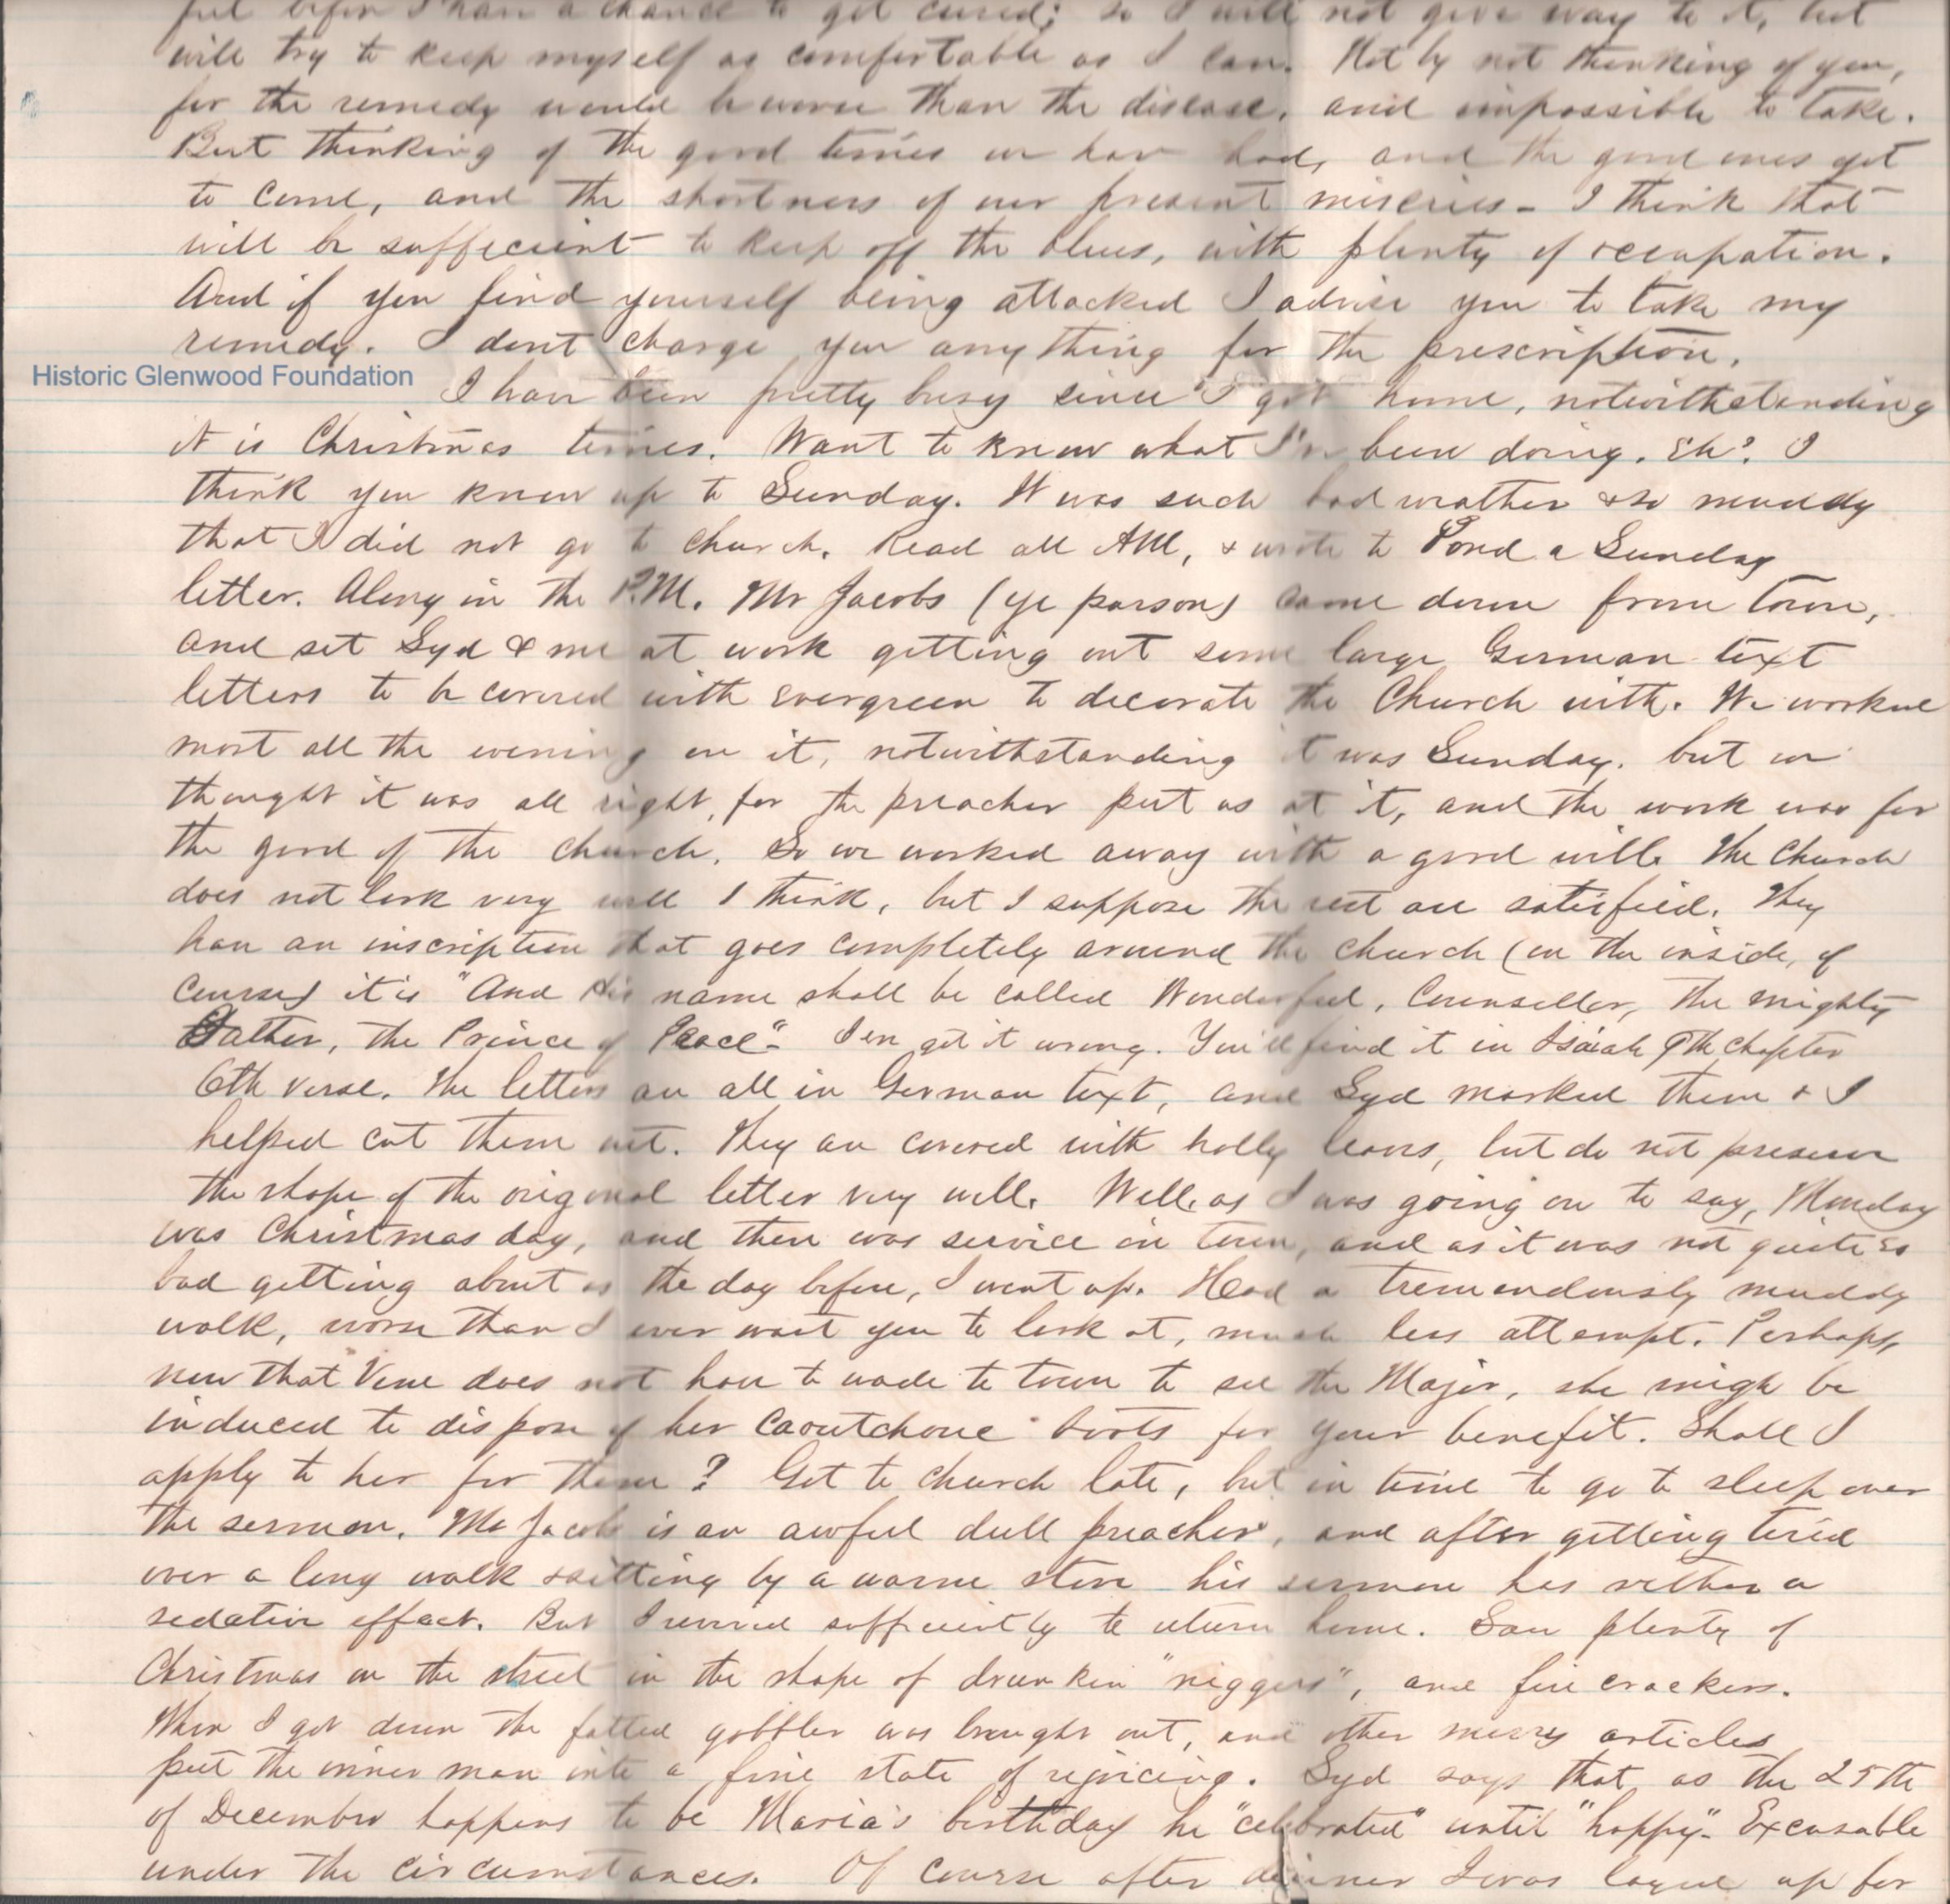 ful before I have a chance to get cured; so I will not give way to it, but
will try to keep myself as comfortable as I can. Not by not thinking of you,
for the remedy would be worse than the disease, and impossible to take.
But thinking of the good times we have had, and the good ones yet
to come, and the shortness of our present miseries - I think that
will be sufficient to keep off the blues, with plenty of occupation.
And if you find yourself being attacked I advise you to take my
remedy. I dont charge you anything for the prescription.
Historic Glenwood Foundation
I have been pretty busy since I got home, notwithstanding
it is Christmas times. Want to know what I've been doing. Eh? I
think you know up to Sunday. It was such bad weather & so muddy
that I did not go to church. Read all AM, & wrote to Pond a Sunday
letter. Along in the P.M. Mr Jacobs (ye parson) came down from town,
and set Syd & me at work getting out some large German text
letters to be covered with evergreen to decorate the Church with. We worked
most all the evening on it, notwithstanding it was Sunday. but we
thought it was all right, for the preacher put us at it, and the work was for
the good of the church. So we worked away with a good will. The Church
does not look very well I think, but I suppose the rest are satisfied. They
have an inscription that goes completely around the church (on the inside, of
course) it is "And His name shall be called Wonderful, Counseller, the mighty
Father, the Prince of Peace". I've got it wrong. You'll find it in Isaiah 9th chapter
6th verse. The letters are all in German text, and Syd marked them & I
helped cut them out. They are covered with holly leaves, but do not preserve
the shape of the original letter very well. Well, as I was going on to say, Monday
was Christmas day, and there was service in town, and as it was not quite so
bad getting about as the day before, I went up. Had a tremendously muddy
walk, worse than I ever want you to look at, much less attempt. Perhaps,
now that Vene does not have to wade to town to see the Major, she migh be
induced to dispose of her Caoutchouc boots for your benefit. Shall I
apply to her for them? Got to church late, but in time to go to sleep over
the sermon. Mr Jacobs is an awful dull preacher, and after getting tired
over a long walk & sitting by a warm stove his sermon has rather a
sedative effect. But I revived sufficiently to return home. Saw plenty of
Christmas on the street in the shape of drunken "niggers", and fire crackers.
When I got down the fatted gobbler was brought out, and other merry articles
put the inner man into a fine state of rejoicing. Syd says that as the 25th
of December happens to be Maria's birthday he "celebrated" until "happy". Excusable
under the circumstances. Of course after dinner I was layed up for